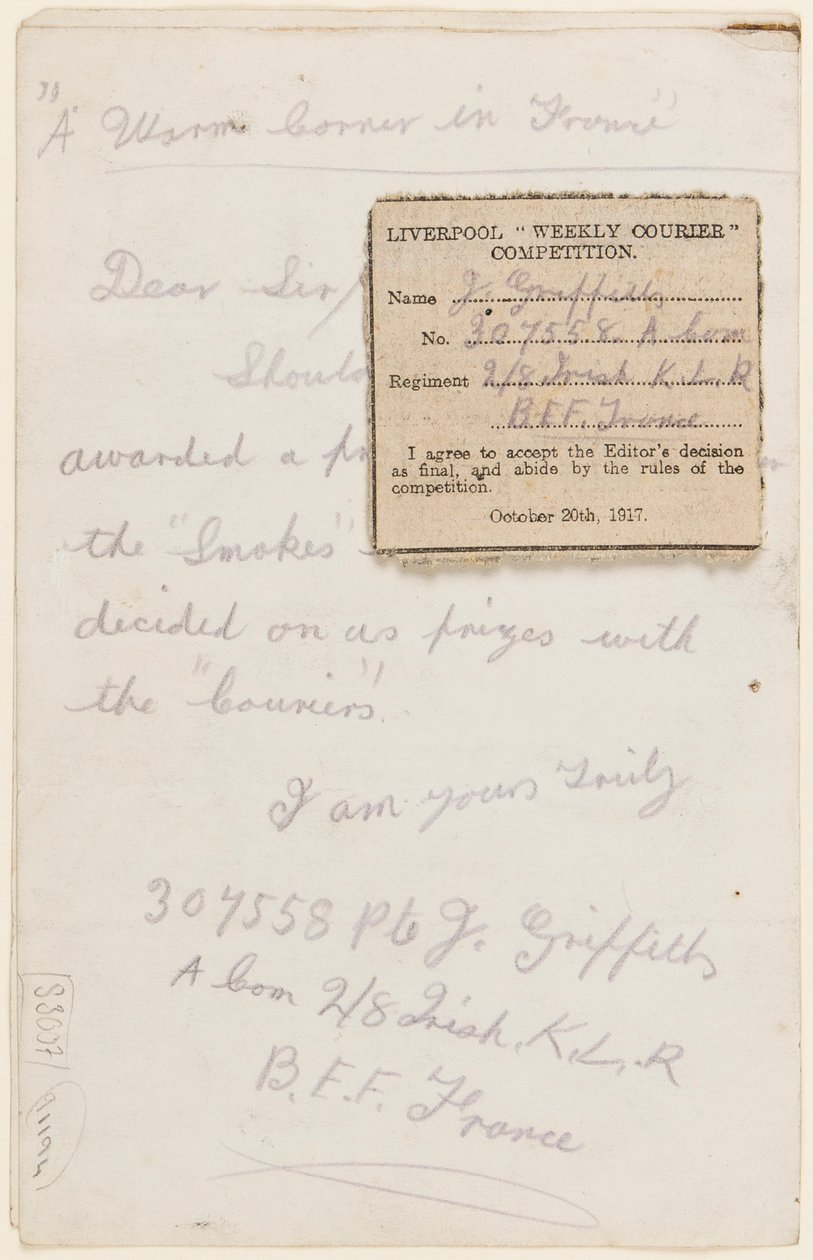 "A Warm Corner in France"
LIVERPOOL "WEEKLY COURIER"
COMPETITION.
Name J. Griffiths
No. 307558 A Com
Regiment 2/8 Irish K.L.R
B.E.F. France
I agree to accept the Editor's decision
as final, and abide by the rules of the
competition.
October 20th, 1917.
Dear Sir/
Should
awarded a
the "Smokes"
decided on as prizes with
the "Couriers".
I am yours Truly
307558 Pte J. Griffiths
A Com 2/8 Irish. K.L.R
B.E.F. France